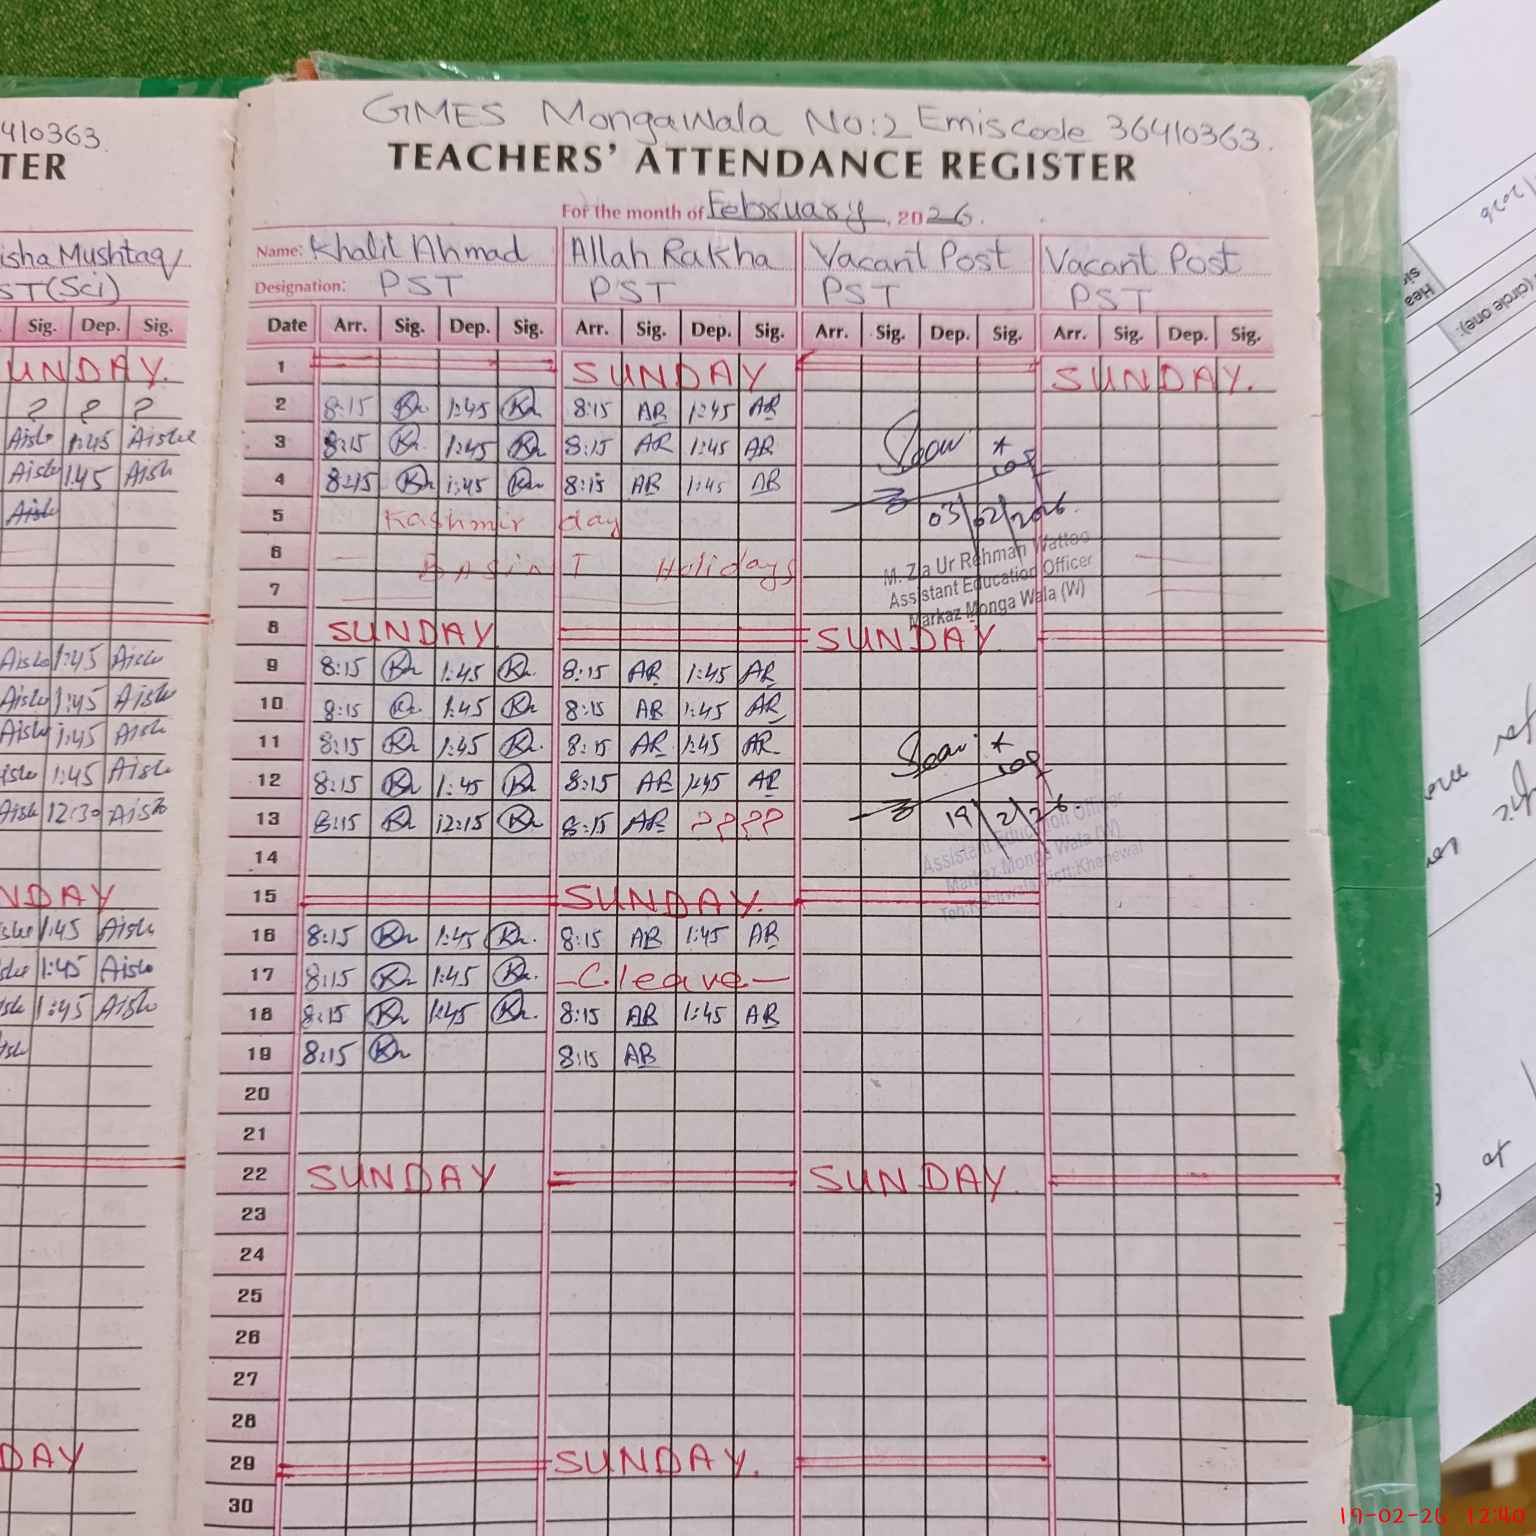 36410363.
GMES Mongawala No:2 Emiscode 36410363.
TEACHERS' ATTENDANCE REGISTER
For the month of February, 2026.
Name: Khalil Ahmad Allah Rakha Vacant Post Vacant Post
Designation: PST PST PST PST
Date Arr. Sig. Dep. Sig. Arr. Sig. Dep. Sig. Arr. Sig. Dep. Sig. Arr. Sig. Dep. Sig.
1 SUNDAY SUNDAY.
2 8:15 Kh 1:45 Kh 8:15 AR 1:45 AR
3 8:15 Kh 1:45 Kh 8:15 AR 1:45 AR
4 8:15 Kh 1:45 Kh 8:15 AR 1:45 AR
5 Kashmir day
03/02/2026.
6 BASINT Holidays
7
M. Zia Ur Rehman Wattoo
Assistant Education Officer
Markaz Monga Wala (W)
8 SUNDAY SUNDAY
9 8:15 Kh 1:45 Kh 8:15 AR 1:45 AR
10 8:15 Kh 1:45 Kh 8:15 AR 1:45 AR
11 8:15 Kh 1:45 Kh 8:15 AR 1:45 AR
12 8:15 Kh 1:45 Kh 8:15 AR 1:45 AR
13 8:15 Kh 12:15 Kh 8:15 AR ????
19/2/26.
14
Assistant Education Officer
Markaz Monga Wala (W)
15 SUNDAY.
16 8:15 Kh 1:45 Kh 8:15 AR 1:45 AR
17 8:15 Kh 1:45 Kh - C.leave -
18 8:15 Kh 1:45 Kh 8:15 AR 1:45 AR
19 8:15 Kh 8:15 AR
20
21
22 SUNDAY SUNDAY.
23
24
25
26
27
28
29 SUNDAY.
30
isha Mushtaq
ST (Sci)
Sig. Dep. Sig.
UNDAY.
? ? ?
Aish 1:45 Aish
Aish 1:45 Aish
Aish
Aish 1:45 Aish
Aish 1:45 Aish
Aish 1:45 Aish
Aish 1:45 Aish
Aish 12:30 Aish
NDAY
Aish 1:45 Aish
Aish 1:45 Aish
Aish 1:45 Aish
Aish
DAY
(circle one):
19-02-26 12:40